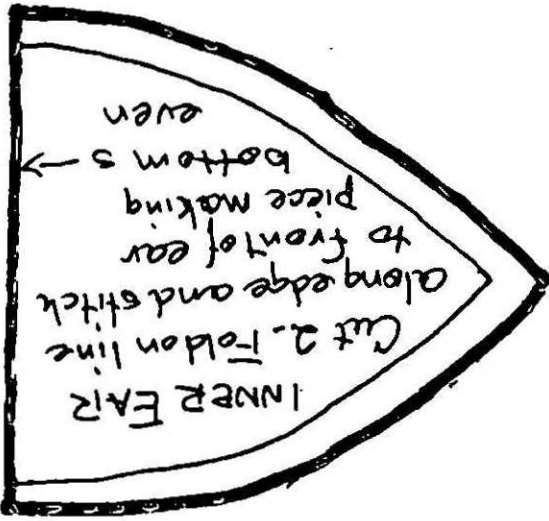 INNER EAR
Cut 2 - Fold on line
along edge and stitch
to front of ear
piece making
bottom s →
even